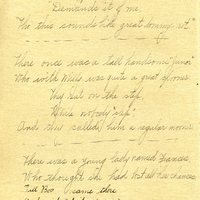 "Demands it of me
"Tho this sounds like great tommy rot."
There once was a tall handsome "junior"
Who with Mills was quite a great spooner
They sat on the step,
While nobody "step"
And they called him a regular mooner.
There was a young lady named Frances
Who thought she had not all her chances
Till Boo came there